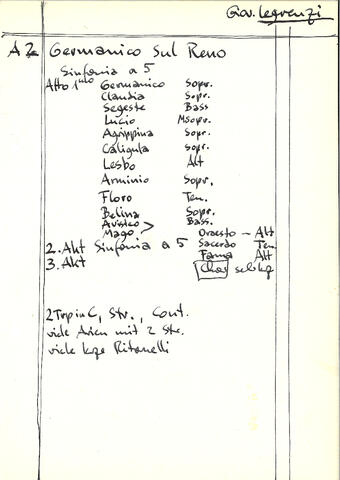 Giov. Legrenzi
A2 Germanico sul Reno
Sinfonia a 5
Atto 1mo Germanico Sopr.
Claudia Sopr.
Segeste Bass
Lucio Msopr.
Agrippina Sopr.
Caligula Sopr.
Lesbo Alt
Arminio Sopr.
Floro Ten.
Belina Sopr.
Avisleo
Mago > Bass.
Oraesto - Alt
2. Akt Sinfonia a 5 Sacerdo Ten.
3. Akt Fama Alt
Chor
2 Trp in C, Str., Cont.
viele Arien mit 2 Str.
viele kze Ritonelli